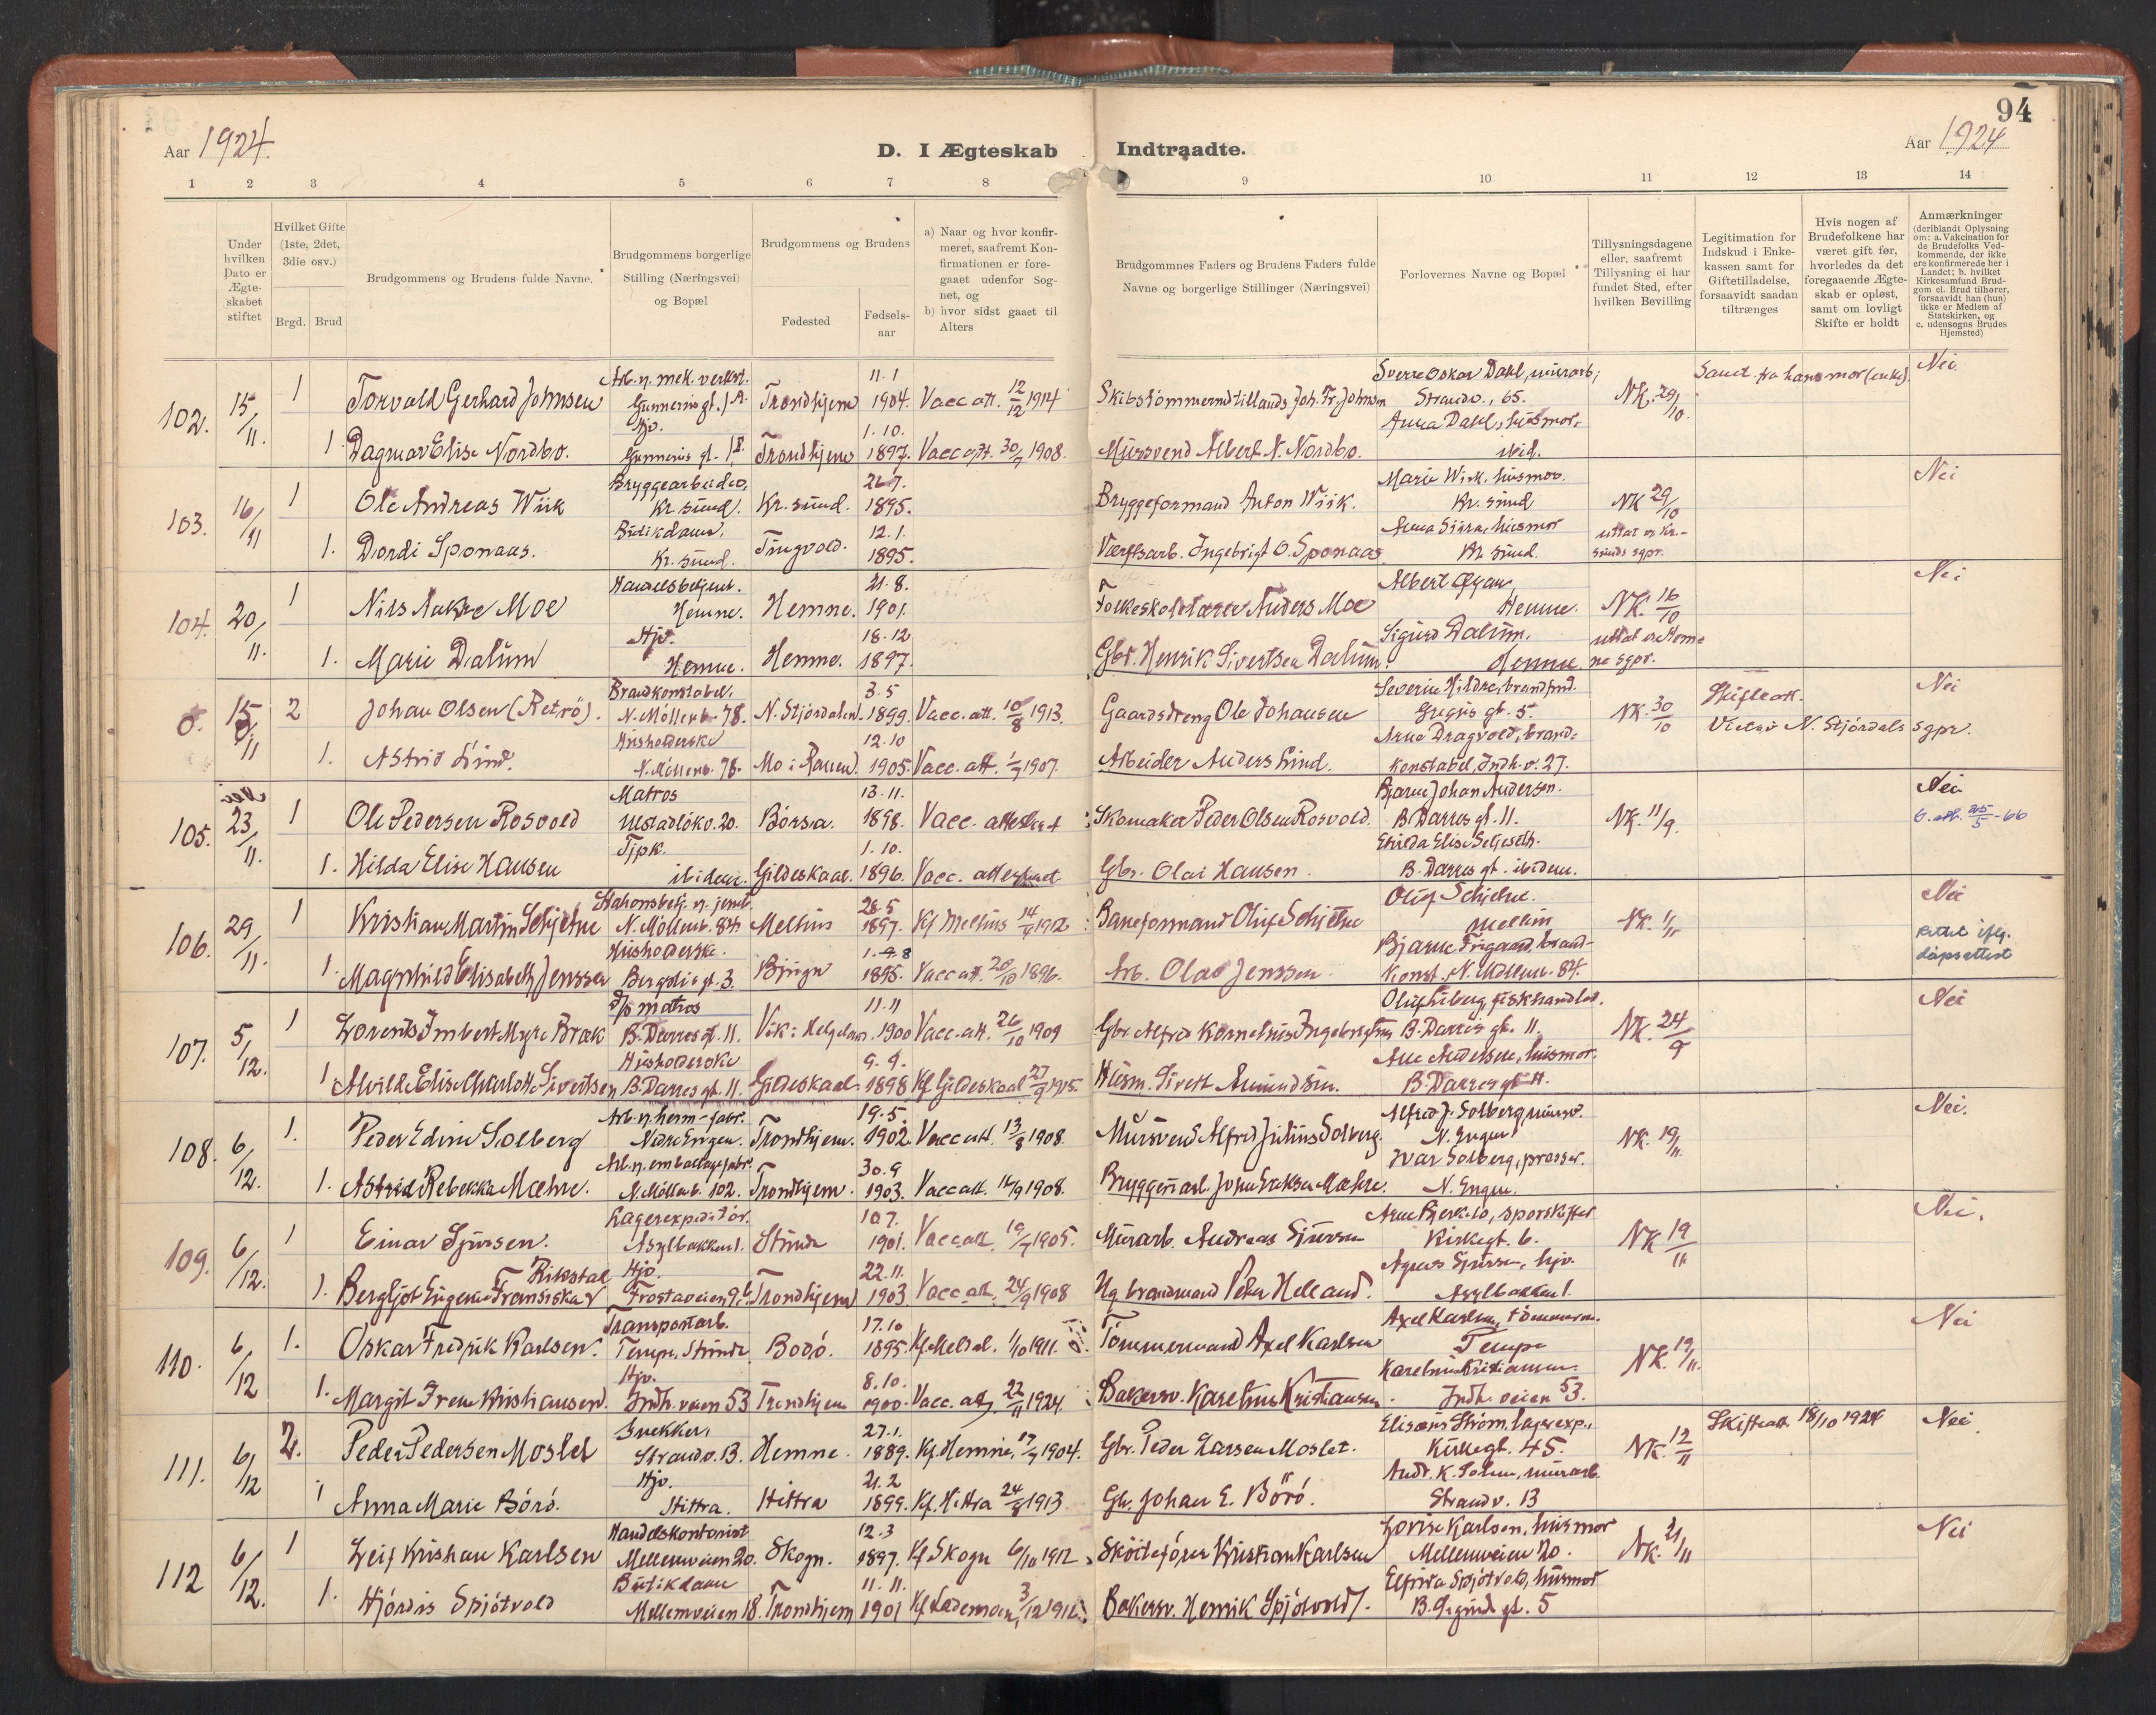 94
Aar 1924.
D. I Ægteskab Indtraadte.
Aar 1924
1 2 3 4 5 6 7 8 9 10 11 12 13 14
Under hvilken Dato er Ægte-skabet stiftet
Hvilket Gifte (1ste, 2det, 3die osv.)
Brgd. Brud
Brudgommens og Brudens fulde Navne.
Brudgommens borgerlige Stilling (Næringsvei) og Bopæl
Brudgommens og Brudens
Fødested
Fødsels-aar
a) Naar og hvor konfir-meret, saafremt Kon-firmationen er fore-gaaet udenfor Sog-net, og
b) hvor sidst gaaet til Alters
Brudgommnes Faders og Brudens Faders fulde Navne og borgerlige Stillinger (Næringsvei)
Forlovernes Navne og Bopæl
Tillysningsdagene eller, saafremt Tillysning ei har fundet Sted, efter hvilken Bevilling
Legitimation for Indskud i Enke-kassen samt for Giftetilladelse, forsaavidt saadan tiltrænges
Hvis nogen af Brudefolkene har været gift før, hvorledes da det foregaaende Ægte-skab er opløst, samt om lovligt Skifte er holdt
Anmærkninger (deriblandt Oplysning om: a. Vakcination for de Brudefolks Ved-kommende, der ikke ere konfirmerede her i Landet; b. hvilket Kirkesamfund Brud-gom el. Brud tilhører, forsaavidt han (hun) ikke er Medlem af Statskirken, og c. udensogns Brudes Hjemsted)
Arb. v. mek. verkst. 11.1 Sverre Oskar Dahl, murarb., Nei.
102. 15/11. 1 Torvald Gerhard Johnsen Gunnerus gt. 1 A. Trondhjem 1904. Vacc att. 12/12 1914 Joh. Fr. Johnsen Strandv., 65. NK. 29/10.
Hjv. 1.10. Anna Dahl, husmor,
1. Dagmar Elise Nordbo. Gunnerus gt. Trondhjem 1897. Vacc att. 30/9 1908. Mursvend Albert N. Nordbo. ibid.
Bryggearbeider, 26.7. Marie Wiik, husmor. Nei
103. 16/11 1 Ole Andreas Wiik Kr. sund. Kr. sund. 1895. Bryggeformand Anton Wiik. Kr. sund NK 29/10
Butikdame, 12.1. Anna husmor
1. Dordi Sponaas. Kr. sund. Tingvold. 1895. Værftsarb. Ingebrigt O. Sponaas Kr. sund.
Handelsbetjent. 21.8. Albert Nei
104. 20/11. 1 Nils Aakre Moe Hemne. Hemne. 1901. Folkeskolelærer Anders Moe Hemne. NK. 16/10
Hjv. 18.12 Sigurd Dalum.
1. Marie Dalum Hemne. Hemne. 1897. Gbr. Henrik Sivertsen Dalum. Hemne.
Brandkonstabel. 3.5 Severin Hildre, brandfmd. Skifteatt. Nei
o. 15/11 2 Johan Olsen (Retrö). N. Möllenb. 78. N. Stjördalen 1899. Vacc. att. 10/8 1913. Gaardsdreng Ole Johansen gt. 5. NK. 30/10 Viet av N. Stjördals sgpr.
Husholderske 12.10 Arne Dragvold, brand-
1. Astrid Lind. N. Möllenb. 78. Mo i Ranen 1905. Vacc. att. 1/7 1907. Arbeider Anders Lind. konstabel, Indh. v. 27.
Matros 13.11. Bjarne Johan Andersen. Nei
105. 23/11. 1 Ole Pedersen Rosvold 20. Börsa. 1898. Vacc. attestert Skomaker Peder Olsen Rosvold. B. Darres gt. 11. NK. 11/9.
Tjpk. 1.10. Elise
1. Hilda Elise Hansen ibidem. Gildeskaal. 1896. Vacc. attestert Gbr. Olai Hansen. B. Darres gt. ibidem.
26.5 Oluf Schjetne. Nei
106. 29/11. 1 Kristian Martin Schjetne N. Möllenb. 84. Melhus 1897. Kf Melhus 14/4 1912 Baneformand Oluf Schjetne NK. 1/11
Husholderske. Bjarne brand-
1. Magnhild Elisabeth Jenssen 3. Bjugn 1895. Vacc att. 20/10 1896. Arb. Olav Jenssen. Konst. N. Möllenb. 84.
matros 11.11 fiskhandler. Nei
107. 5/12. 1 Lorents Imbert Myre Bræk B. Darres gt. 11. Vik i Helgeland. 1900 Vacc. att. 26/10 1909 Gbr. Alfred Kornelius B. Darres gt. 11. NK. 24/9
Husholderske 9.9. Andersen, husmor.
1 Alvilde Elise Charlotte Sivertsen B. Darres gt. 11. Gildeskaal 1898 Kf Gildeskaal 27/9 1915. Husm. Sivert Amundsen. B. Darres gt. 11.
Arb. v. herm-fabr. 19.5. Alfred J. Solberg, mursv. Nei.
108. 6/12. 1. Peder Edvin Solberg Nedre Engen. Trondhjem. 1902. Vacc att. 13/8 1908. Mursvend Alfred Julius Solberg. N. Engen NK. 19/11.
Arb. v. emballagefabr. 30.9 Ivar Solberg, presser.
1. Astrid Rebekka Mæhre. N. Möllenb. 102. Trondhjem. 1903. Vacc att. 14/9 1908. N. Engen.
Lagerexpeditör. 10.7. Nei.
109. 6/12. 1 Einar Sjursen. Asylbakken 1. Strinda 1901. Vacc att. 1905. Murarb. Andreas Sjursen Kirkegt. 6. NK 19/11
Rikstad Hjv. 22.11. Agnes Sjursen, hjv.
1. Bergljot Eugenie Fransiska Frostaveien 9b. Trondhjem 1903 Vacc att. 24/9 1908 Peter Helland. Asylbakken 1.
Transportarb. 17.10 Axel Karlsen, tömmerm. Nei
110. 6/12 1. Oskar Fredrik Karlsen. Tempe, Strinda Bodö. 1895. Kf Meldal. 1/10 1911. Tömmermand Axel Karlsen Tempe NK. 19/11.
Hjv. 8.10. Karelius Kristiansen.
1. Margit Irene Kristiansen. Indh. veien 53 Trondhjem 1900. Vacc. att. 22/11 1924 Bakersv. Karelius Kristiansen. Indh. veien 53.
Snekker, 27.1. Elisæus Ström, lagerexp., Skifteatt. 18/10 1924 Nei
111. 6/12 2. Peder Pedersen Moslet Strandv. 13. Hemne. 1889. Kf Hemne, 1904. Gbr. Peder Larsen Moslet. Kirkegt. 45. NK. 12/11
Hjv. 21.2 Andr. K. murarb.
1 Anna Marie Börö. Hittra. Hittra 1899. Kf. Hittra 24/8 1913. Gbr. Johan E. Börö. Strandv. 13
Handelskontorist 12.3 Lovise Karlsen, husmor Nei
112 6/12. 1 Leif Kristian Karlsen Mellemveien 20. Skogn. 1897. Kf Skogn 6/10 1912 Sköiteförer Kristian Karlsen Mellemveien 20. NK. 21/11
Butikdame 11.11. Elfrida Spjötvold, husmor
1. Hjördis Spjötvold Mellemveien 18. Trondhjem 1901 Kf Lademoen 3/12 Bakersv. Henrik Spjötvold. B. gt. 5